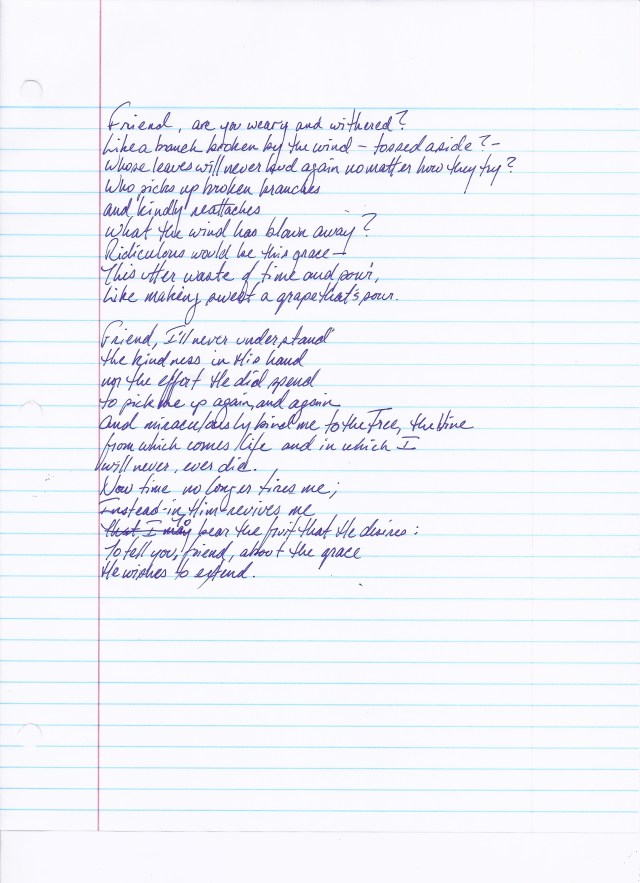 Friend, are you weary and withered?
Like a branch broken by the wind – tossed aside? –
Whose leaves will never bud again no matter how they try?
Who picks up broken branches
and kindly reattaches
What the wind has blown away?
Ridiculous would be this grace –
This utter waste of time and pow'r,
Like making sweet a grape that's sour.
Friend, I'll never understand
the kindness in His hand
nor the effort He did spend
to pick me up again, and again
And miraculously bind me to the Tree, the Vine
from which comes life and in which I
will never, ever die.
Now time no longer tires me;
Instead in Him revives me
that I may bear the fruit that He desires:
To tell you, friend, about the grace
He wishes to extend.